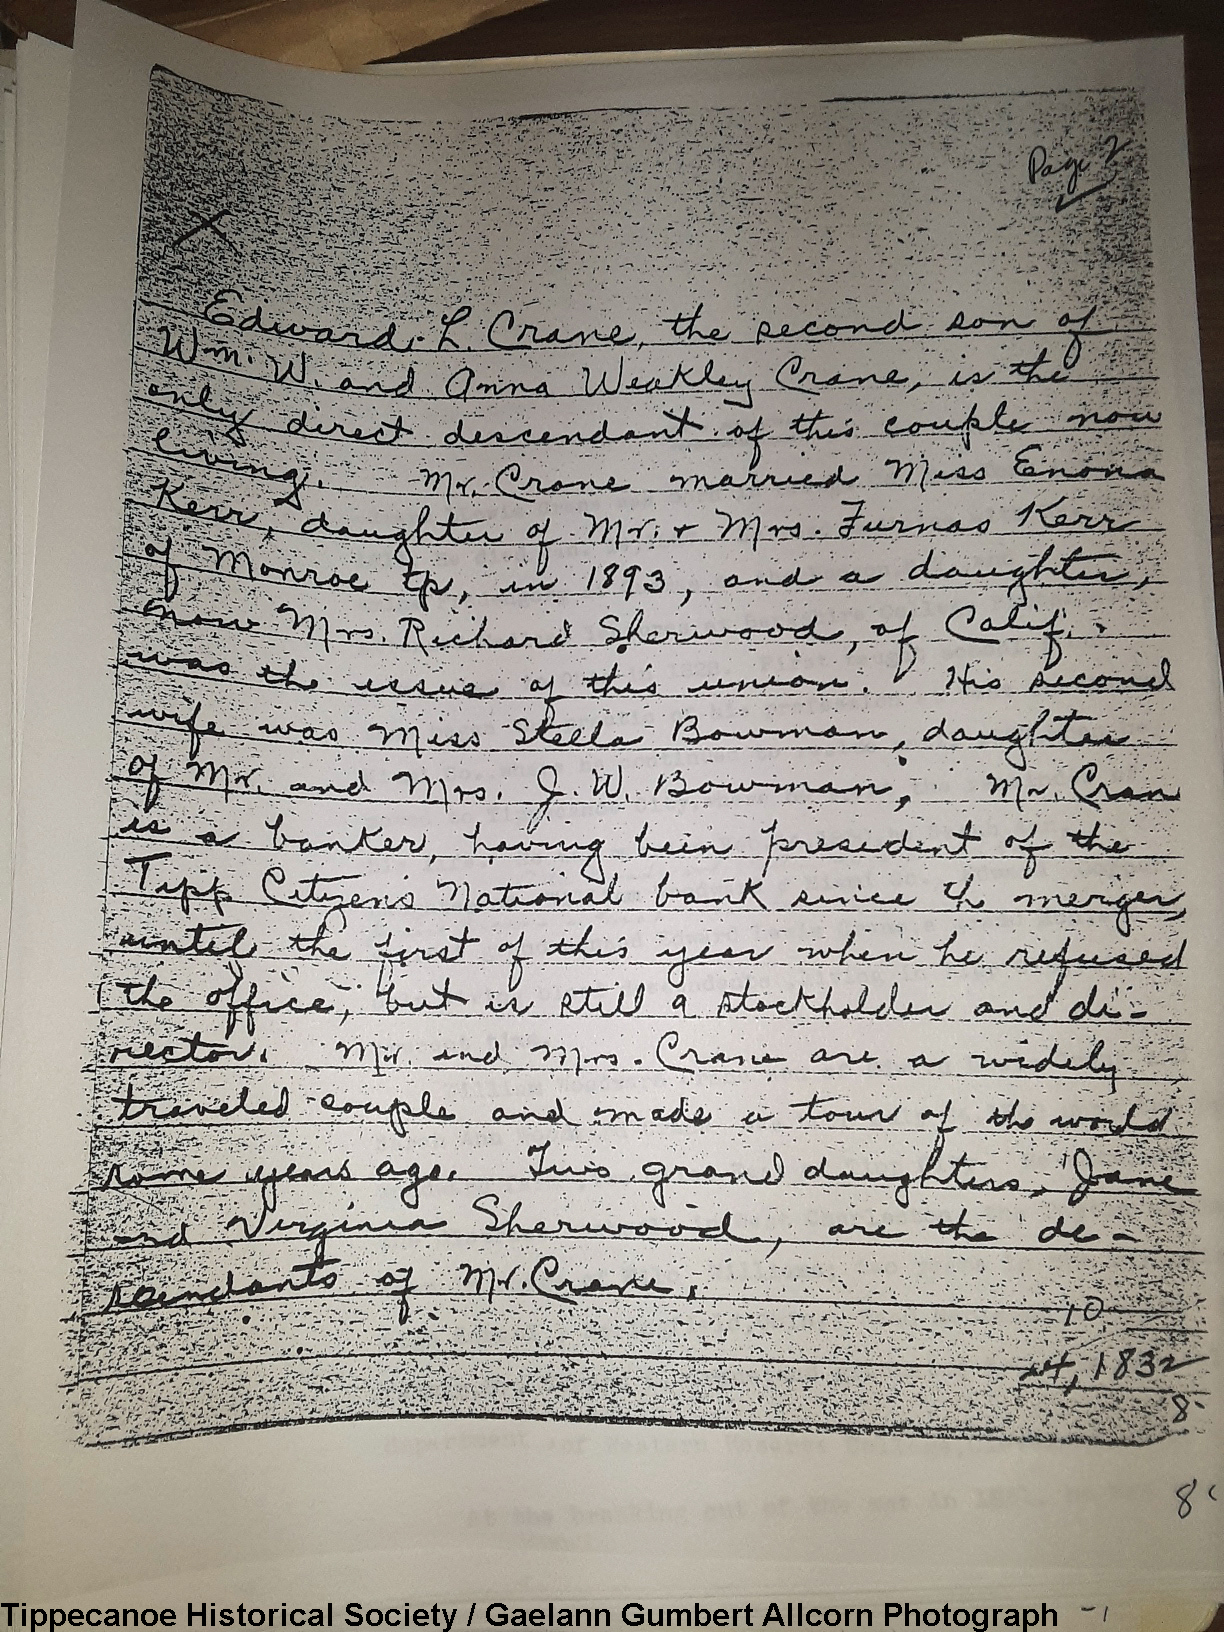 Page 2
Edward L. Crane, the second son of
Wm. W. and Anna Weakley Crane, is the
only direct descendant of this couple now
living. Mr. Crane married Miss Enona
Kerr, daughter of Mr. + Mrs. Furnas Kerr
of Monroe tp, in 1893, and a daughter,
now Mrs. Richard Sherwood, of Calif.
was the issue of this union. His second
wife was Miss Stella Bowman, daughter
of Mr. and Mrs. J. W. Bowman, Mr. Cran
is a banker, having been president of the
Tipp Citizens National bank since th merger,
until the first of this year when he refused
the office, but is still a stockholder and di-
rector. Mr. and Mrs. Crane are a widely
traveled couple and made a tour of the world
some years ago. Two grand daughters, Jane
and Virginia Sherwood, are the de-
scendants of Mr. Crane.
10
1832
8
8
Tippecanoe Historical Society / Gaelann Gumbert Allcorn Photograph